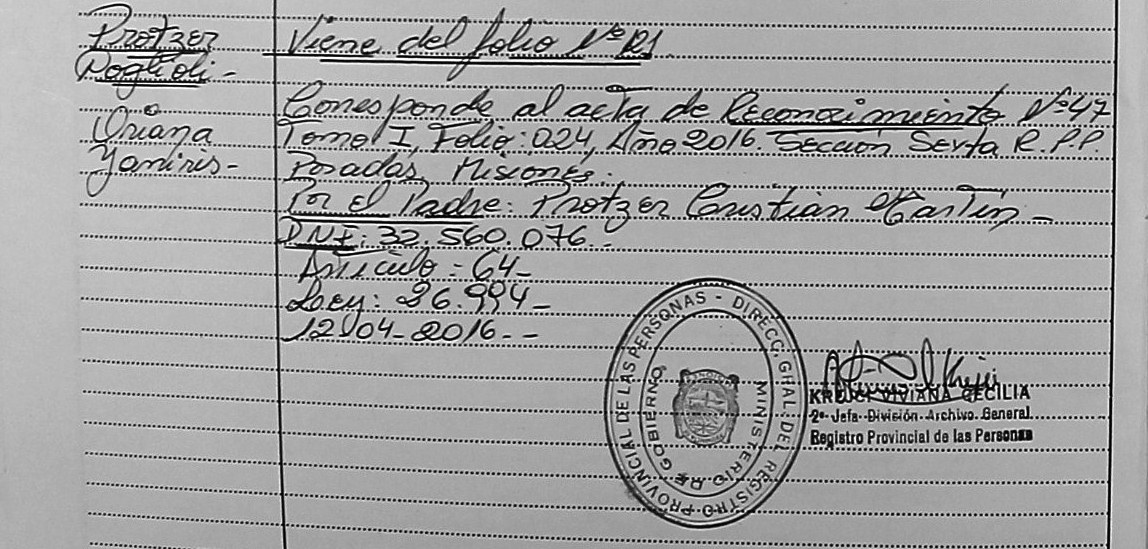 Protzer
Poglioli -
Oriana
Yamires -
Viene del folio Nº 121
Corresponde al acta de Reconocimiento Nº 47
Tomo I, Folio: 024, Año 2016. Sección Sexta R.P.P.
Posadas, Misiones.
Por el Padre: Protzer Cristian Martin -
DNI: 32.560.076.-
Artículo: 64 -
Ley: 26.994 -
12-04-2016. --
PROVINCIAL DE LAS PERSONAS - DIRECC. GRAL. DEL REGISTRO
MINISTERIO DE GOBIERNO
VIVIANA CECILIA
2º Jefa División Archivo General
Registro Provincial de las Personas